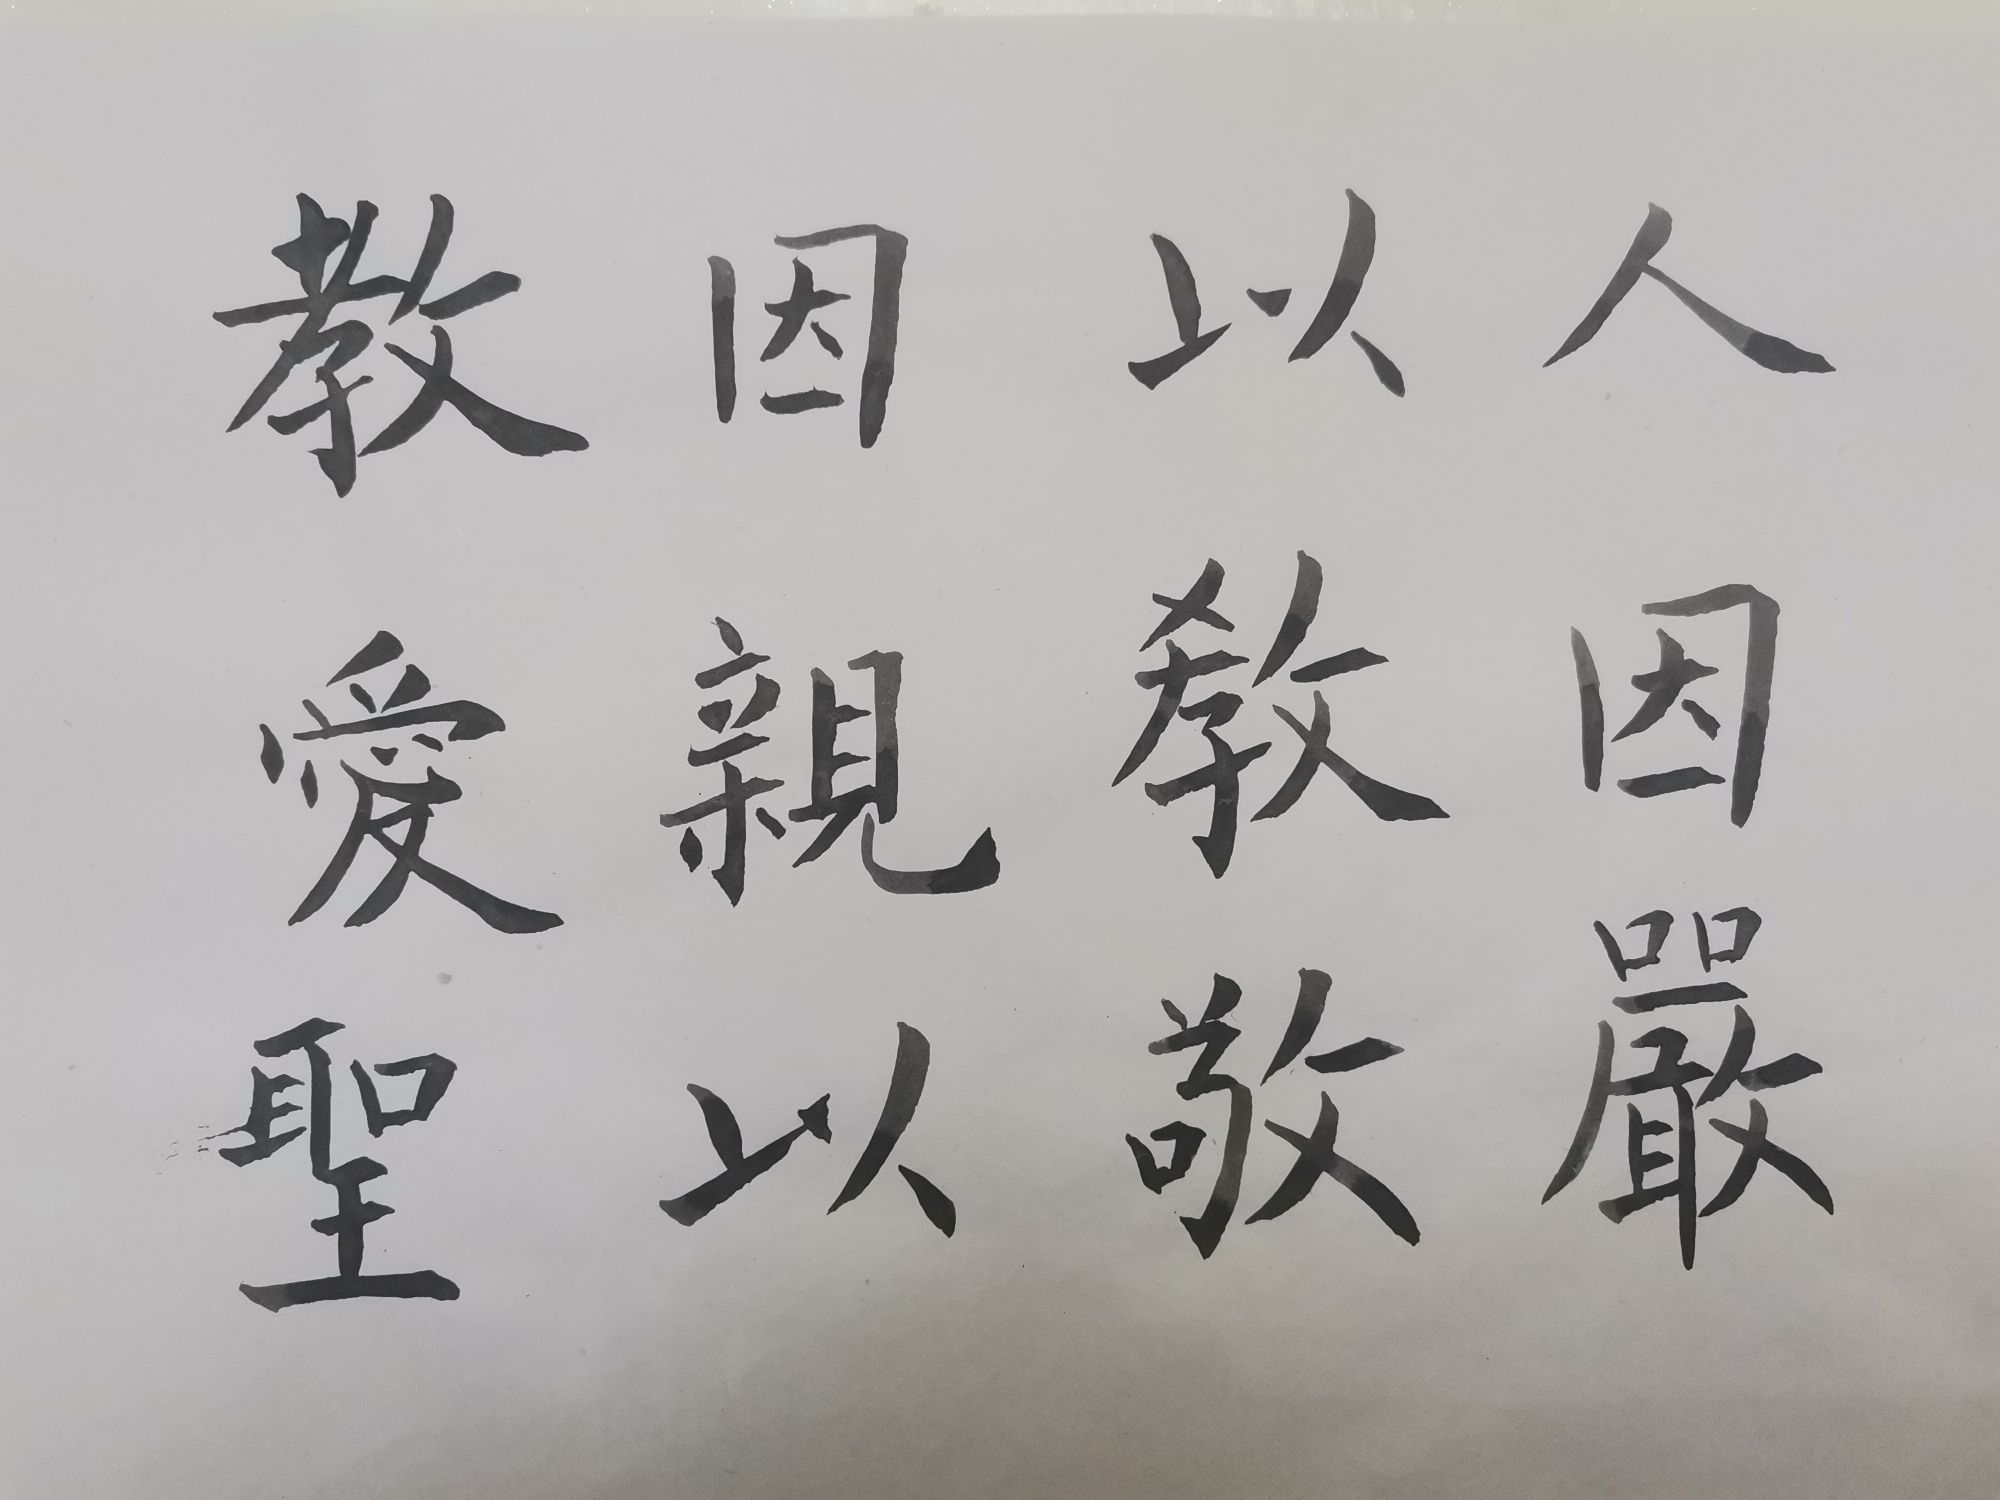 人因嚴
以敎敬
因親以
教愛聖